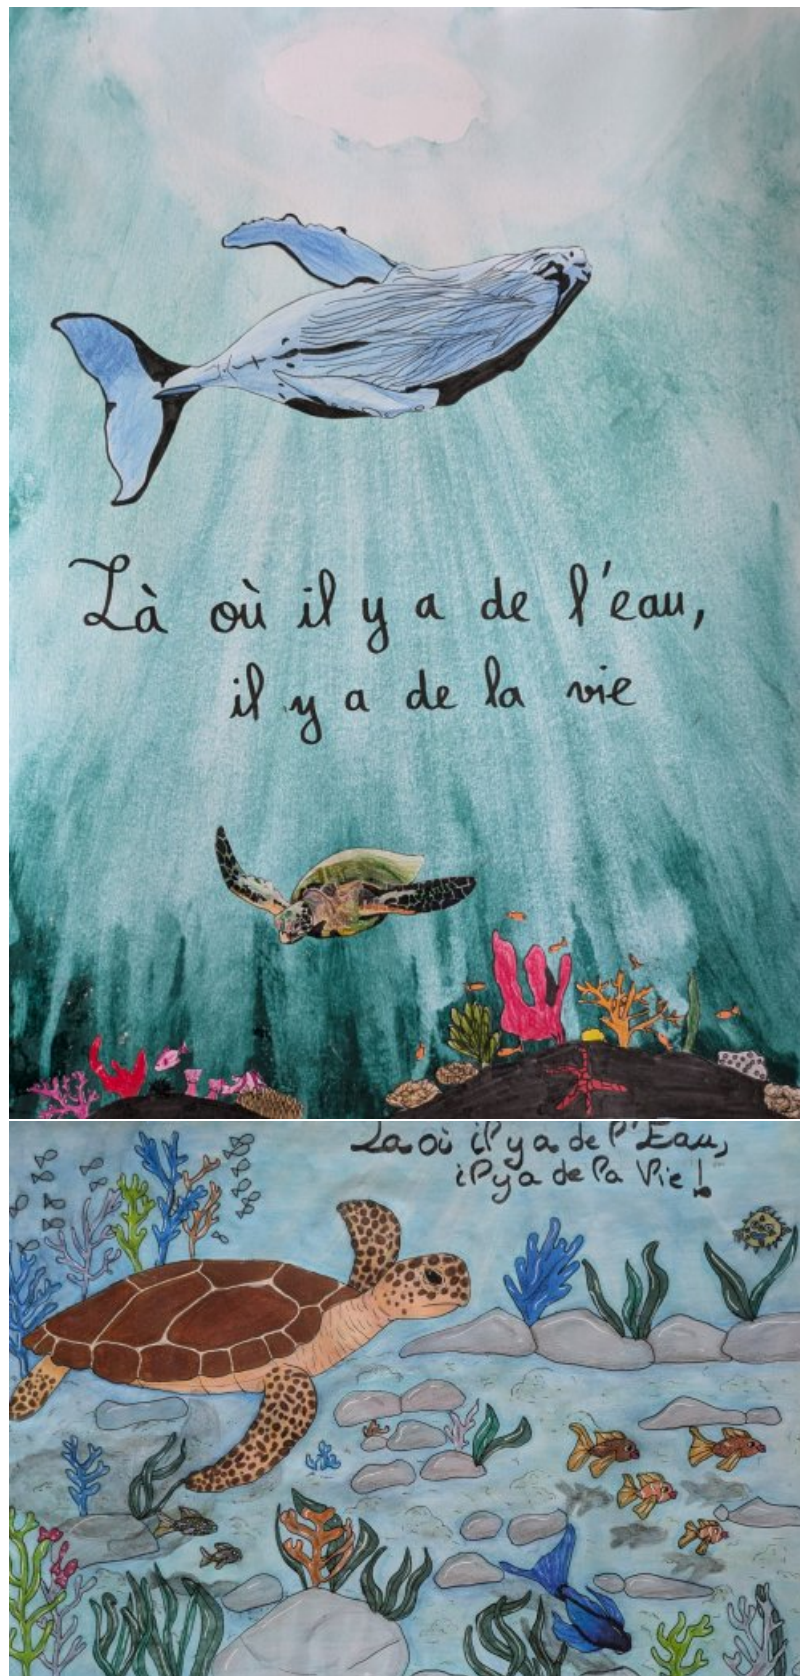 Là où il y a de l'eau,
il y a de la vie
Là où il y a de l'Eau,
il y a de la Vie !